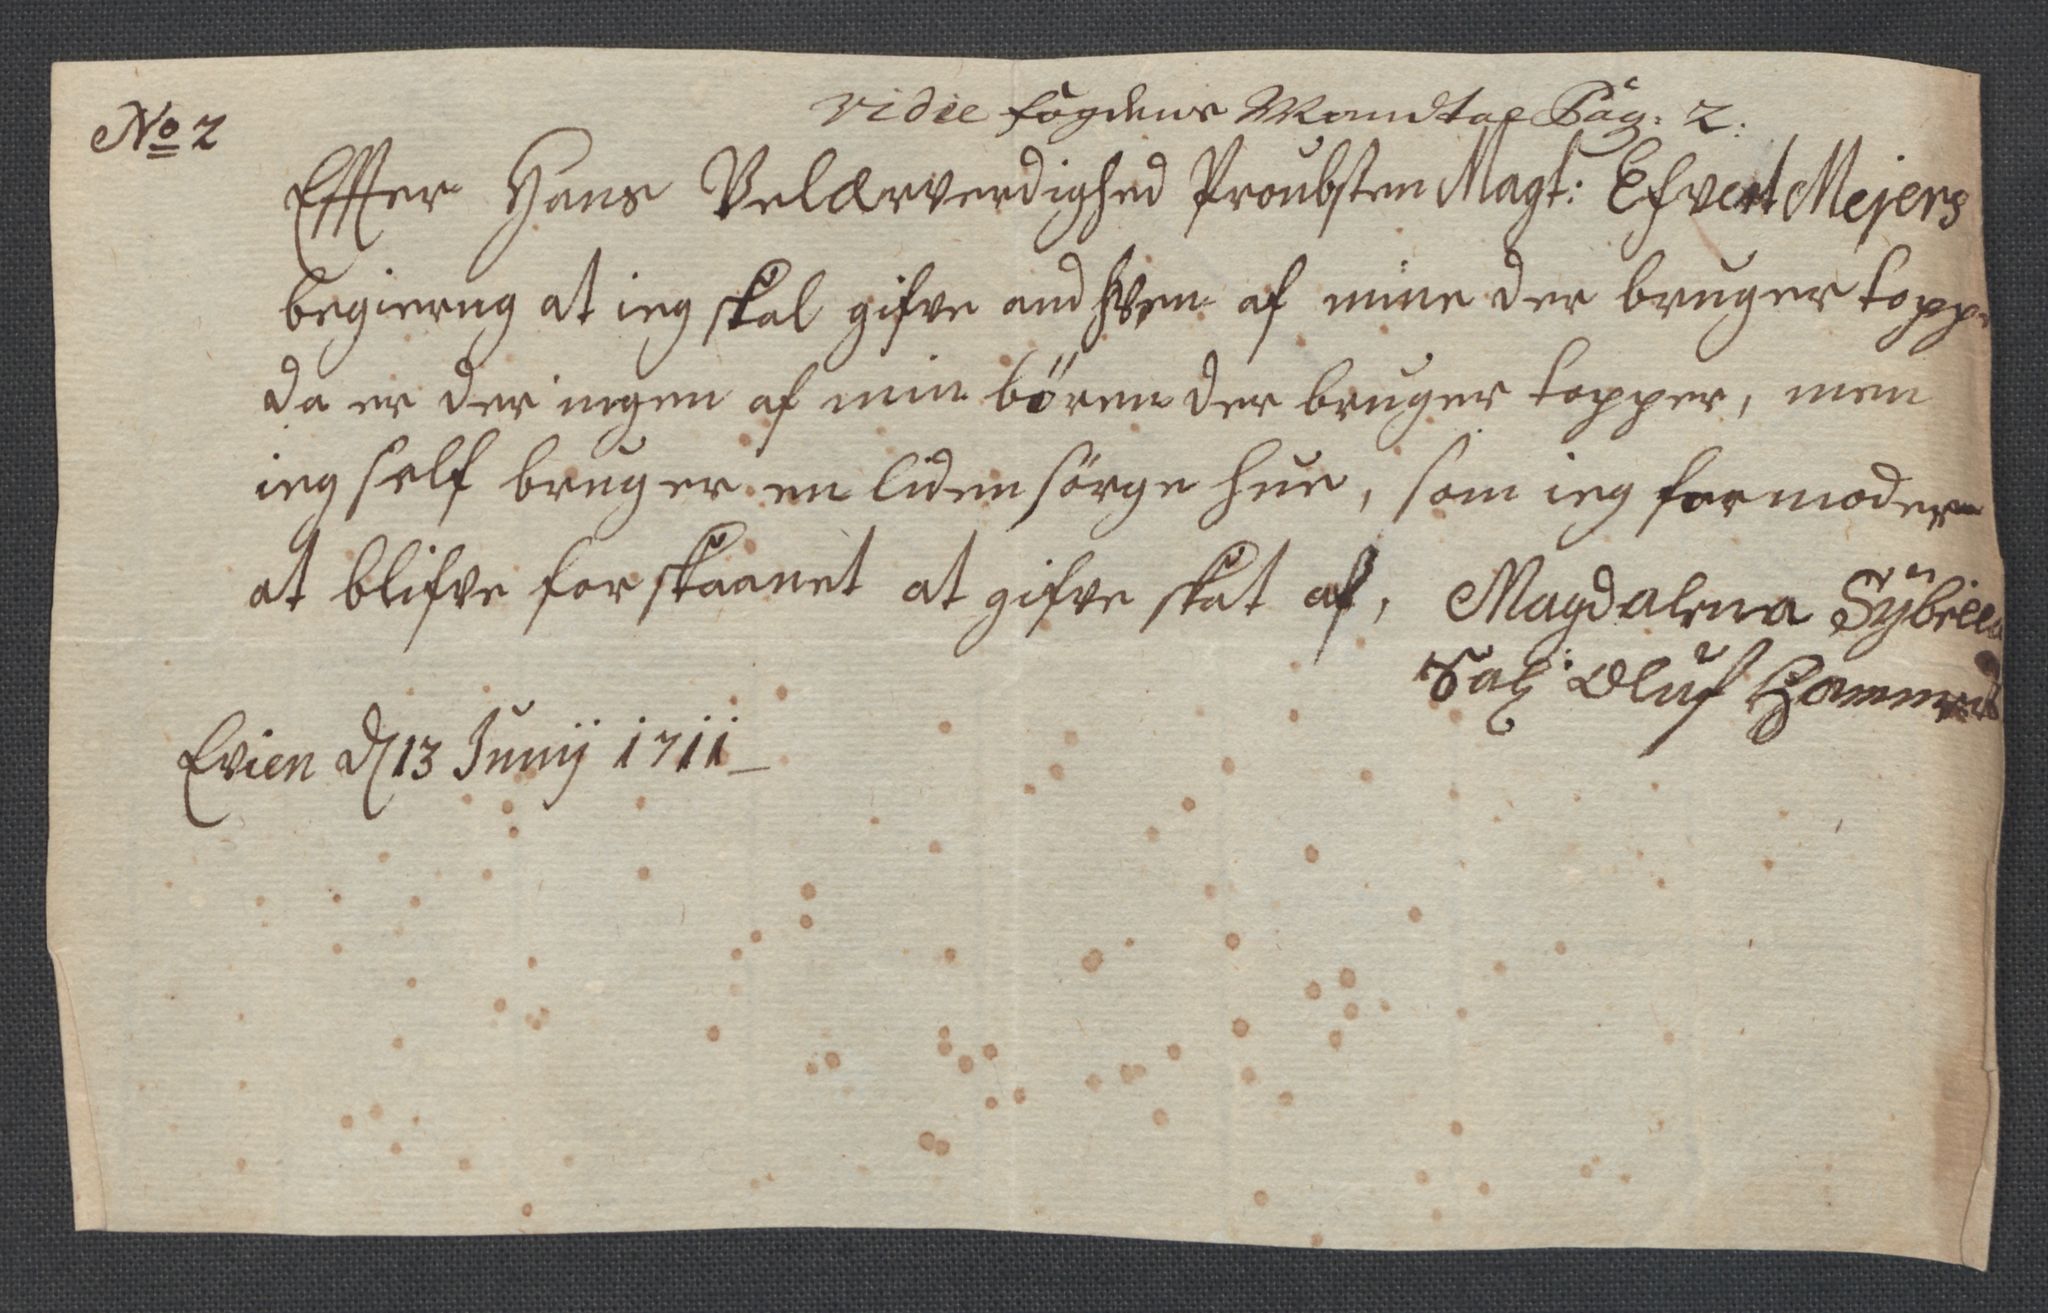 No 2
vidie fogdens Mandtal Pag: 2:
Effter Hans Velærverdighed Proubsten Magt: Efvert Mejers
begierng at ieg skal gifve and hven af mine der bruger topper
da er der ingen af min bören der bruger topper, men
ieg self bruger en liden sörge hue, som ieg formoder
at blifve forskaanet at gifve skat af, Magdalena Sÿbilla
Sal: Oluf Hammers
Evien d 13 Junij 1711